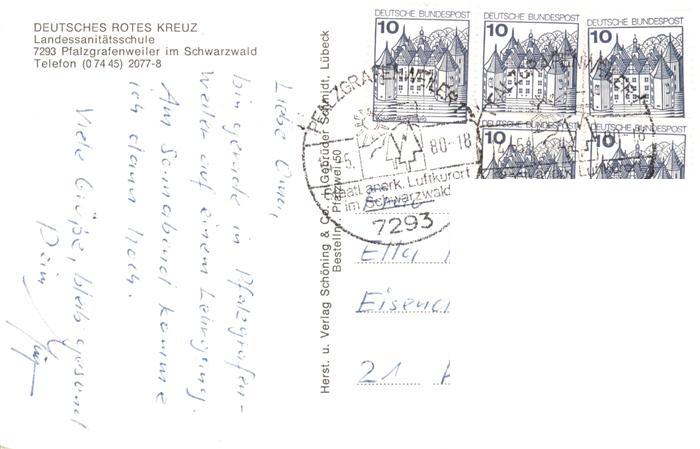 DEUTSCHES ROTES KREUZ
Landessanitätsschule
7293 Pfalzgrafenweiler im Schwarzwald
Telefon (0 74 45) 2077-8
Liebe Oma,
bin gerade in Pfalzgrafen-
weiler auf einem Lehrgang.
Am Sonnabend komme
ich dann hoch.
Viele Grüße, bleib gesund
Dein
Herst. u. Verlag Schöning & Co. + Gebrüder Schmidt, Lübeck
Bestellnr. Pfalzwei 50
10 DEUTSCHE BUNDESPOST
10 DEUTSCHE BUNDESPOST
10 DEUTSCHE BUNDESPOST
10
10
PFALZGRAFENWEILER 1
5. 80-18
Staatl. anerk. Luftkurort
im Schwarzwald
7293
Frau
Ella
Eisenc
21